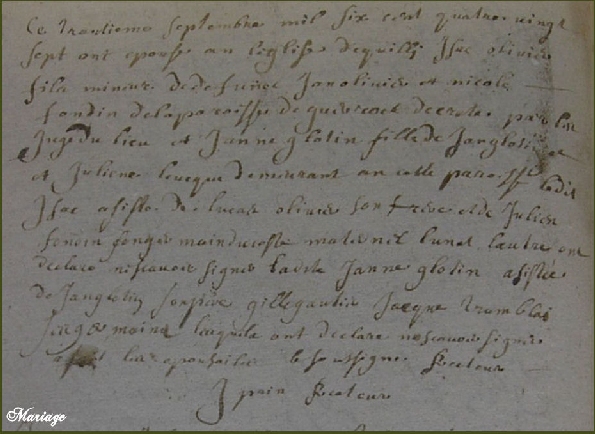 Ce trantieme septembre mil six cent quatre vingt
sept ont epousé an leglise dequilli Isac olivier
fils mineur de defunct Jan olivier et nicole
fondin de la paroisse de decreté par les
Juge du lieu et Janne glotin fille de Jan glotin
et Juliene leveque demeurant an cette paroisse ledit
Isac asisté de lucas olivier son frere et de Julien
fondin son germain du costé maternel lun et lautre ont
declaré ne scavoir signer laditte Janne glotin asistée
de Jan glotin son père gille gautier Jacque tremblai
germains lesquels ont declaré ne scavoir signer
a fait les epousailles le soussigné Recteur
J Recteur
Mariage